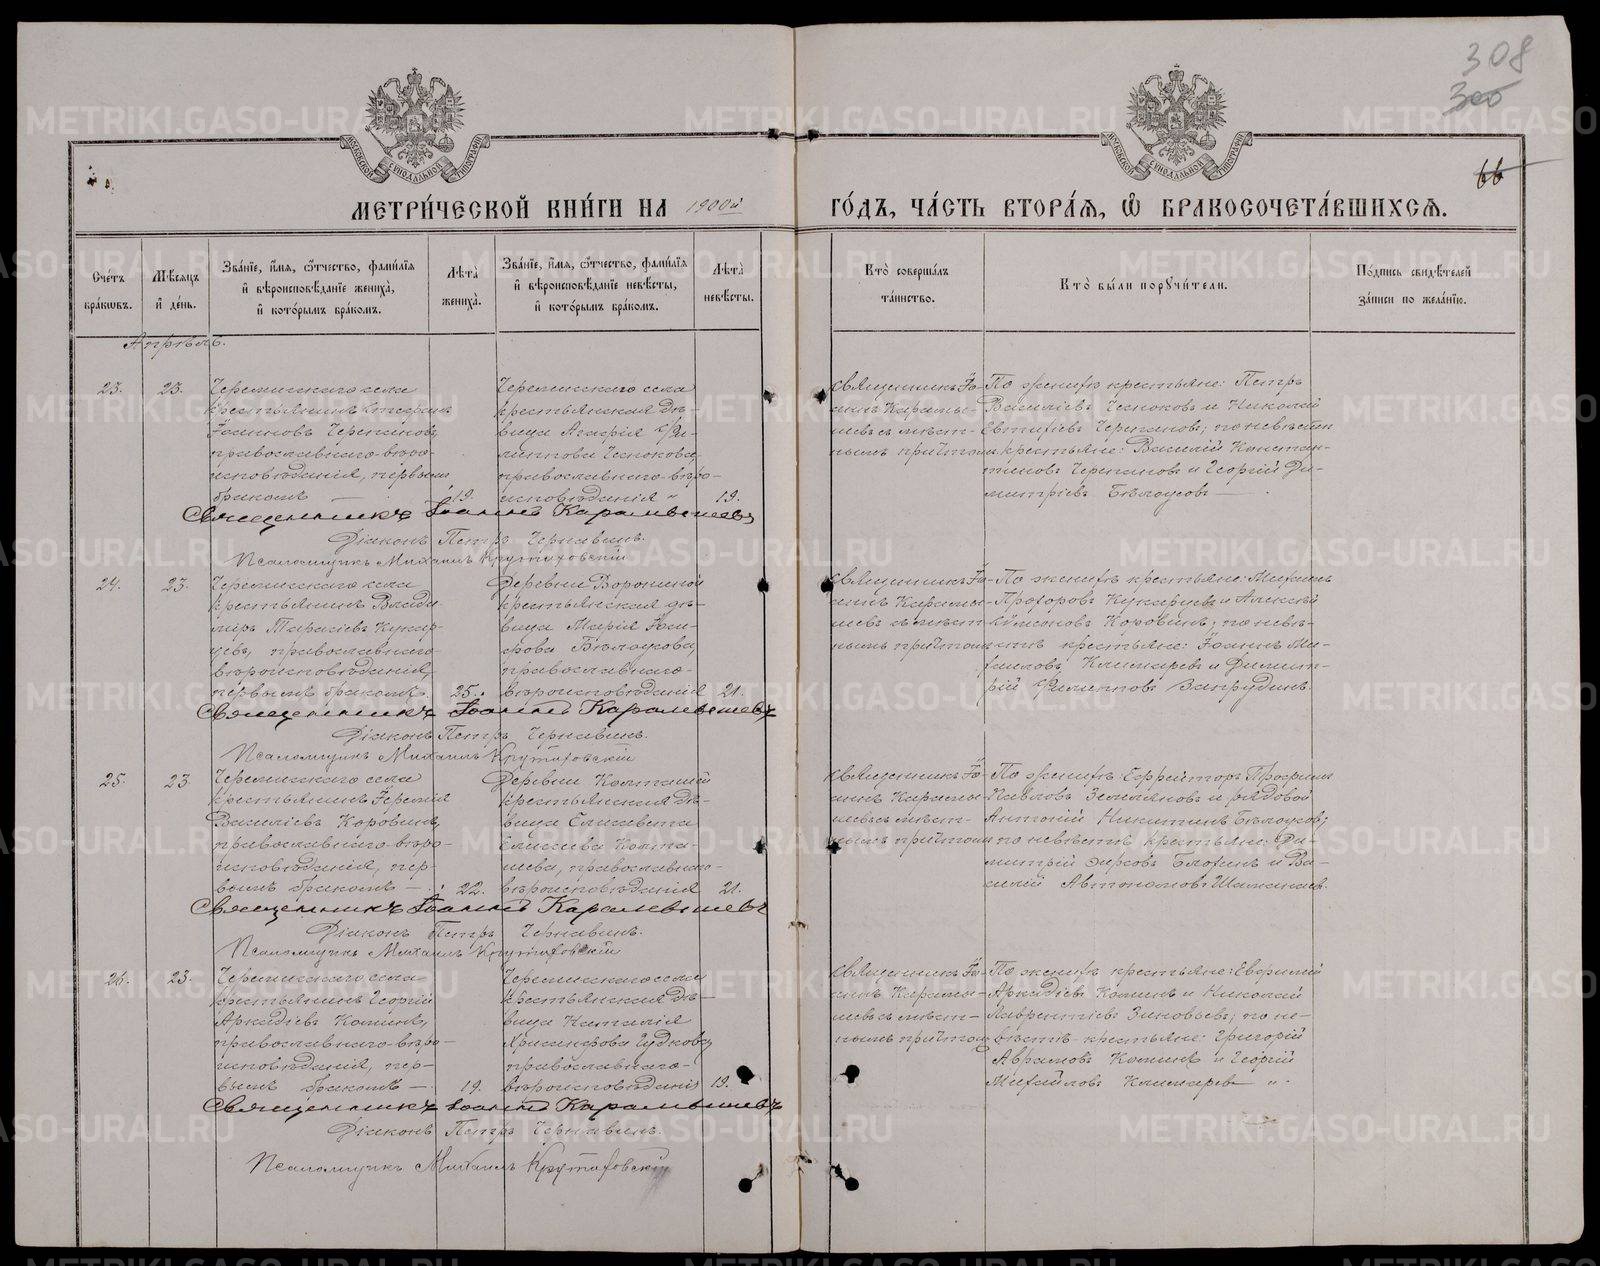 308
300
66
МОСКОВСКОЙ СѴНОДАЛЬНОЙ ТИПОГРАФІИ
МОСКОВСКОЙ СѴНОДАЛЬНОЙ ТИПОГРАФІИ
МЕТРИ́ЧЕСКОЙ КНИ́ГИ НА 1900й ГО́ДЪ, ЧА́СТЬ ВТОРА́Я, Ѽ БРАКОСОЧЕТА́ВШИХСЯ.
Сче́тъ бра́ковъ.
Мѣ́сяцъ и де́нь.
Зва́нїе, и́мя, о́тчество, фами́лїя и вѣроисповѣ́данїе жениха̀, и кото́рымъ бра́комъ.
Лѣ́та жениха̀.
Зва́нїе, и́мя, о́тчество, фами́лїя и вѣроисповѣ́данїе невѣ́сты, и кото́рымъ бра́комъ.
Лѣ́та невѣ́сты.
Кто̀ соверша́лъ та́инство.
Кто̀ бы́ли поручи́тели.
По́дпись свидѣ́телей за́писи по жела́нїю.
Апрѣль.
23.
23.
Черемисскаго села
крестьянинъ Стефанъ
Іоанновъ Черепановъ,
православнаго вѣро-
исповѣданія, первымъ
бракомъ —
19.
Черемисскаго села
крестьянская дѣ-
вица Агафія Фи-
липпова Чеснокова,
православнаго вѣро-
исповѣданія „
19.
Священникъ Іо-
аннъ Карамы-
шевъ съ мѣст-
нымъ причтомъ
По женихѣ крестьяне: Петръ
Василіевъ Чесноковъ и Николай
Евтихіевъ Черепановъ; по невѣстѣ
крестьяне: Василій Констан-
тиновъ Черепановъ и Георгій Ди-
митріевъ Бѣлоусовъ —
Священникъ Іоаннъ Карамышевъ
Діаконъ Петръ Чернавинъ.
Псаломщикъ Михаилъ Крутиховскій
24.
23.
Черемисскаго села
крестьянинъ Влади-
міръ Тарасіевъ Кукар-
цевъ, православнаго
вѣроисповѣданія,
первымъ бракомъ
25.
Деревни Ворониной
крестьянская дѣ-
вица Марія
Бѣлоусова,
православнаго
вѣроисповѣданія
21.
Священникъ Іо-
аннъ Карамы-
шевъ съ мѣст-
нымъ причтомъ
По женихѣ крестьяне: Михаилъ
Прохоровъ Кукарцевъ и Алексѣй
Симоновъ Коровинъ; по невѣ-
стѣ крестьяне: Іоаннъ Ми-
хаиловъ Клишаревъ и Димит-
рій Филипповъ Запрудинъ.
Священникъ Іоаннъ Карамышевъ
Діаконъ Петръ Чернавинъ.
Псаломщикъ Михаилъ Крутиховскій
25.
23.
Черемисскаго села
крестьянинъ Іеремія
Василіевъ Коровинъ,
православнаго вѣро-
исповѣданія, пер-
вымъ бракомъ —
22.
Деревни Колташи
крестьянская дѣ-
вица Елисавета
Елисіева Колта-
шева, православнаго
вѣроисповѣданія
21.
Священникъ Іо-
аннъ Карамы-
шевъ съ мѣст-
нымъ причтомъ
По женихѣ: Ефрейторъ Трофимъ
Павловъ Земляновъ и рядовой
Антоній Никитинъ Бѣлоусовъ;
по невѣстѣ крестьяне: Ди-
митрій и Ва-
силій Автономовъ
Священникъ Іоаннъ Карамышевъ
Діаконъ Петръ Чернавинъ.
Псаломщикъ Михаилъ Крутиховскій
26.
23.
Черемисскаго села
крестьянинъ Георгій
Аркадіевъ Коминъ,
православнаго вѣро-
исповѣданія, пер-
вымъ бракомъ —
19.
Черемисскаго села
крестьянская дѣ-
вица Наталія
Хрисанфова Гудкова,
православнаго
вѣроисповѣданія
19.
Священникъ Іо-
аннъ Карамы-
шевъ съ мѣст-
нымъ причтомъ
По женихѣ крестьяне: Евфимій
Аркадіевъ Коминъ и Николай
Лаврентіевъ Зиновьевъ; по не-
вѣстѣ крестьяне: Григорій
Аврамовъ Коминъ и Георгій
Михайловъ Клишаревъ „.
Священникъ Іоаннъ Карамышевъ
Діаконъ Петръ Чернавинъ.
Псаломщикъ Михаилъ Крутиховскій
METRIKI.GASO-URAL.RU